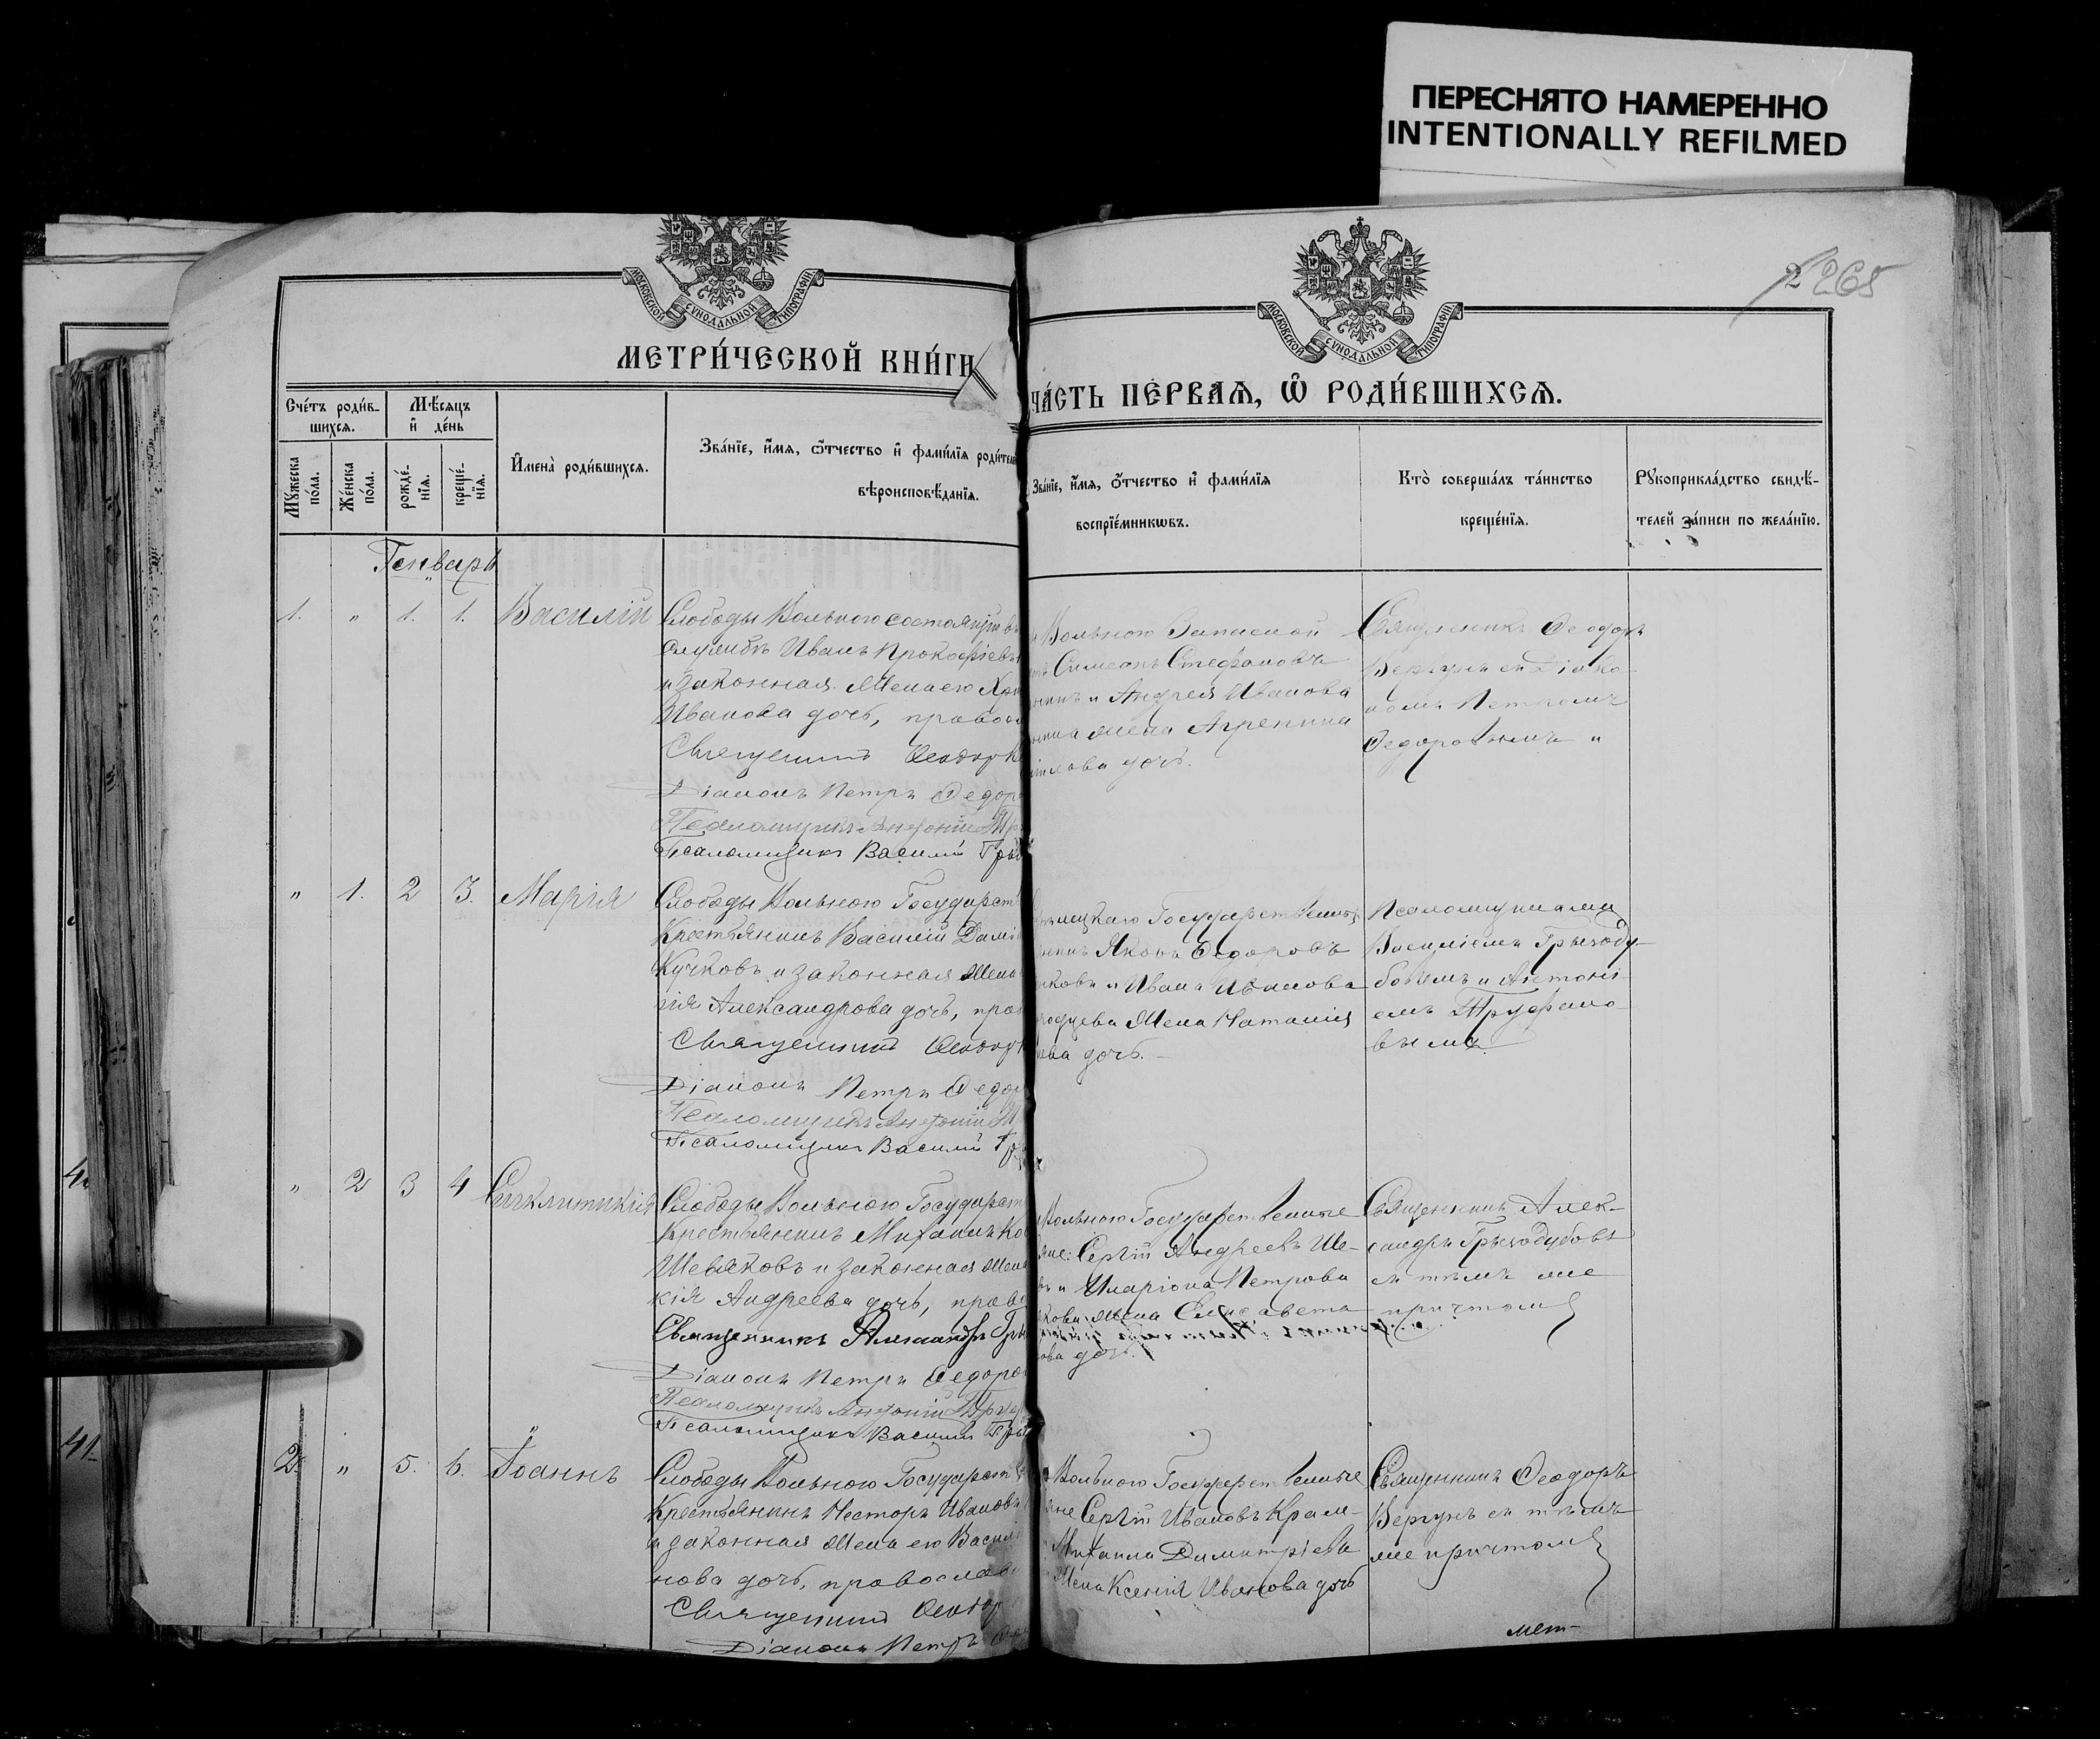 ПЕРЕСНЯТО НАМЕРЕННО
INTENTIONALLY REFILMED
2 265
МОСКОВСКОЙ СѴНОДАЛЬНОЙ ТИПОГРАФІИ
МОСКОВСКОЙ СѴНОДАЛЬНОЙ ТИПОГРАФІИ
МЕТРИ́ЧЕСКОЙ КНИ́ГИ
ЧА́СТЬ ПЕ́РВАѦ, Ѽ РОДИ́ВШИХСѦ.
Сче́тъ роди́в-
шихсѧ.
Мѣ́сѧцъ
и҆ де́нь
Мꙋ́жеска
по́ла.
Же́нска
по́ла.
рожде́-
нїѧ.
креще́-
нїѧ.
И҆мена̀ роди́вшихсѧ.
Зва́нїе, и҆́мѧ, ѻ҆́тчество и҆ фами́лїѧ роди́теле
вѣроисповѣ́данїѧ.
Зва́нїе, и҆́мѧ, ѻ҆́тчество и҆ фами́лїѧ
воспрїе́мникѡвъ.
Кто̀ соверша́лъ та́инство
креще́нїѧ.
Рꙋкоприкла́дство свидѣ́-
телей за́писи по жела́нїю.
Генварь
1. " 1. 1. Василій
Слободы Вольного состоящій въ
службѣ Иванъ Прокофіевъ
и законная жена его
Иванова дочь, правосл
Священникъ Ѳеодоръ
Діаконъ Петръ Ѳедоро
Псаломщикъ Антоній Тр
Псаломщикъ Василій Грых
Вольного Запасной
Симеонъ Стефановъ
и Андрея Иванова
жена Агрепина
дочь.
Священникъ Ѳеодоръ
Вергунъ съ Діако-
номъ Петромъ
Ѳедоровымъ и
" 1. 2 3. Марія
Слободы Вольного Государст
Крестьянинъ Василій Дамі
Кучковъ и законная жена
Александрова дочь, прав
Священникъ Ѳеодоръ
Діаконъ Петръ Ѳедор
Псаломщикъ Антоній Т
Псаломщикъ Василій Гр
Государственный
Яковъ Ѳедоровъ
и Ивана Иванова
жена Наталія
ева дочь.
Псаломщиками
Василіемъ Грыходу-
бовымъ и Антоні-
емъ Труфано-
вымъ
" 2 3 4 Синклитикія
Слободы Вольного Государст
Крестьянинъ Михаилъ
Шевяковъ и законная жена
кія Андреева дочь, прав
Священникъ Александръ Гры
Діаконъ Петръ Ѳедоров
Псаломщикъ Антоній Труф
Псаломщикъ Василій Гры
Вольного Государственные
Сергій Андреевъ Ше-
и Иларіона Петрова
жена Елисавета
ова дочь.
Священникъ Алек-
сандръ Грыходубовъ
съ тѣмъ же
причтомъ
2. " 5. 6. Іоаннъ
Слободы Вольного Государст
Крестьянинъ Несторъ Ивановъ
и законная жена его Васил
нова дочь, православ
Священникъ Ѳеодор
Діаконъ Петръ
Вольного Государственные
Сергій Ивановъ Крам-
Михаила Димитріева
жена Ксенія Иванова дочь
Священникъ Ѳеодоръ
Вергунъ съ тѣмъ
же причтомъ
мет-
41.